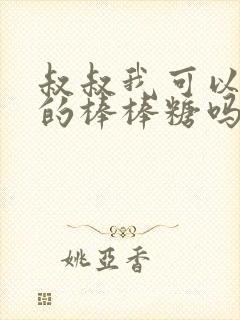 叔叔我可以
的棒棒糖吗
姚亚香